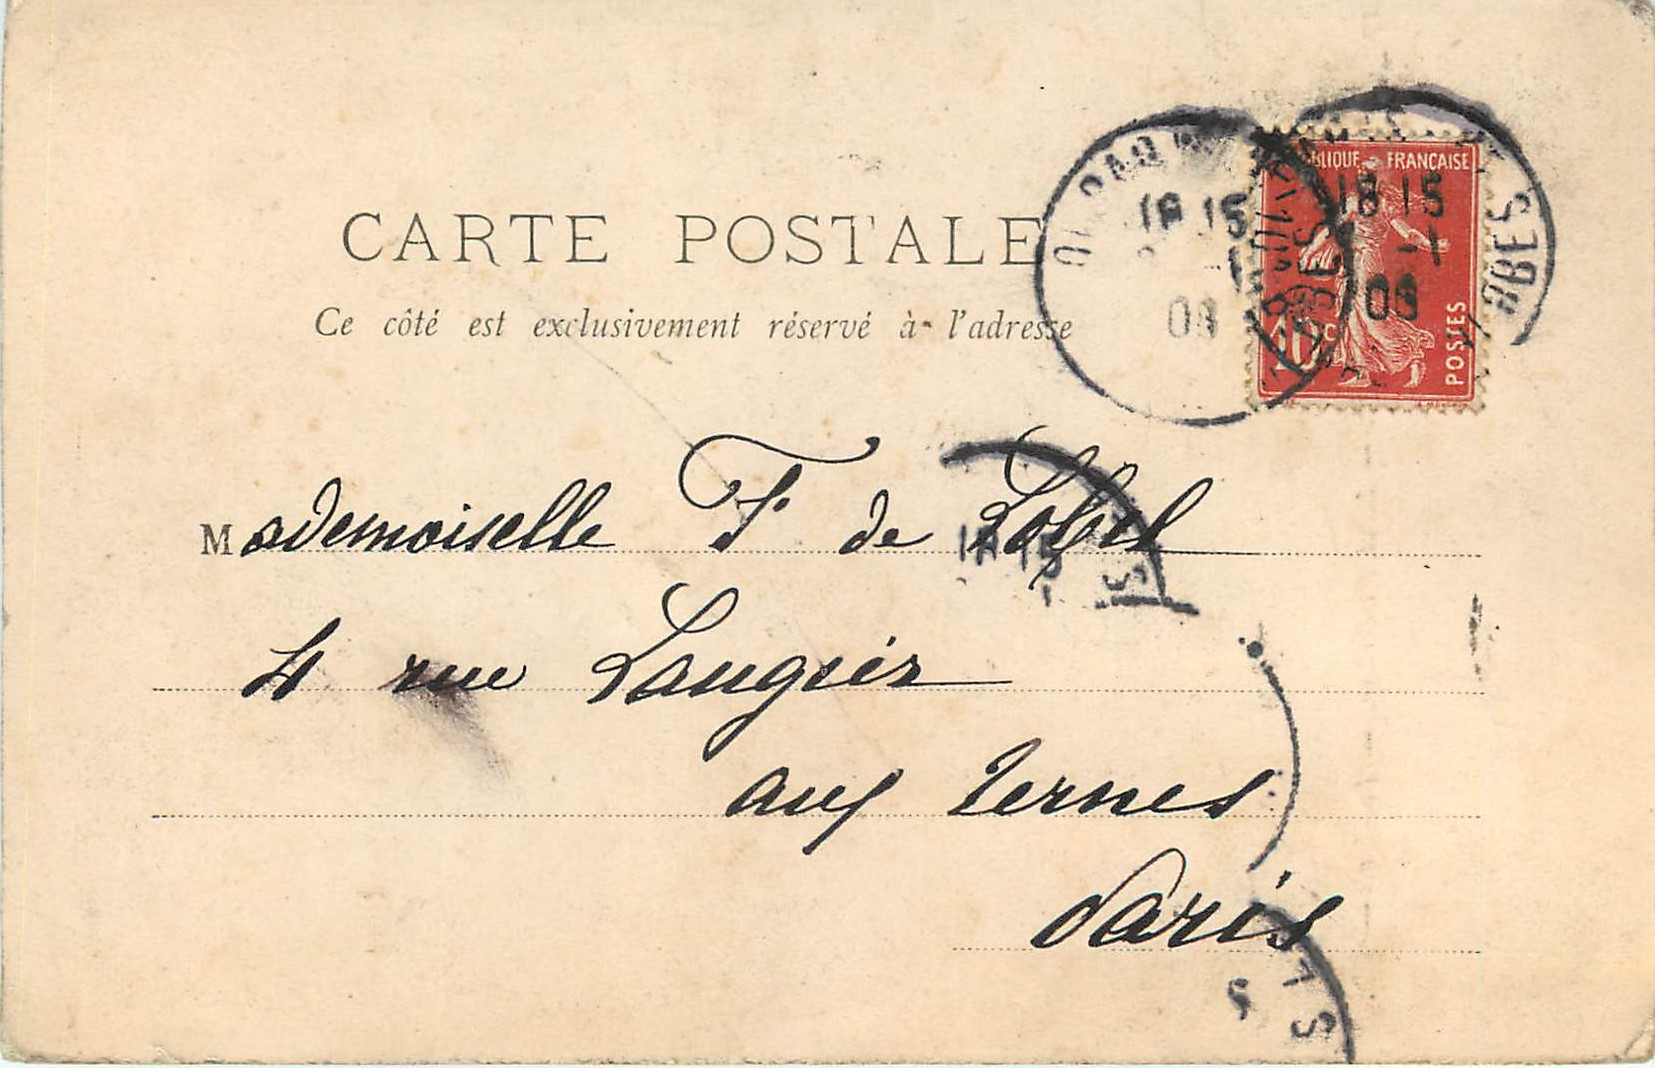 CARTE POSTALE
Ce côté est exclusivement réservé à l'adresse
RÉPUBLIQUE FRANÇAISE
10c
POSTES
18 15
08
18 15
-1
08
Mademoiselle F. de Lobel
4 rue Laugier
aux Ternes
Paris